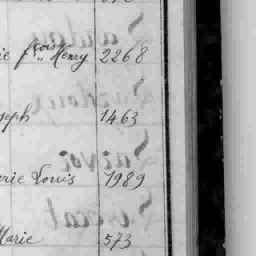 ie fcois Henry 2268
seph 1463
rie Louis 1989
Marie 573